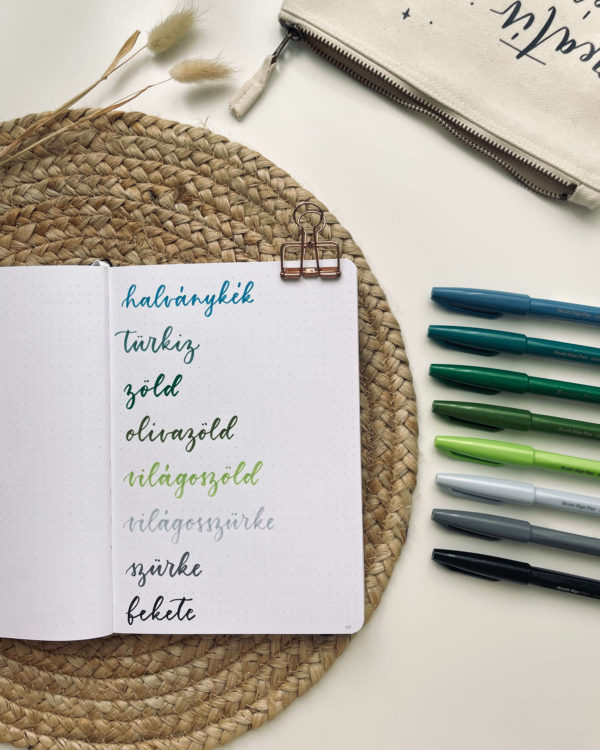 halványkék
türkiz
zöld
olivazöld
világoszöld
világosszürke
szürke
fekete
Brush Sign Pen
Brush Sign Pen
Brush Sign Pen
Brush Sign Pen
Brush Sign Pen
Brush Sign Pen
Brush Sign Pen
Brush Sign Pen